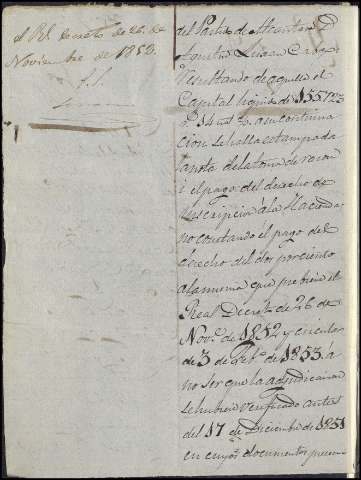 Rl. Decreto de 26. de
Noviembre de 1852.
del Partido de
Resultando de aquella el
Capital liquido de 155,723
14 mrs. a su continua
cion se halla estampada
la nota de la toma de razon
i el pago del derecho de
inscripcion á la Hacienda
no constando el pago del
derecho del dos por ciento
a la misma que previene el
Real Decreto de 26 de
Nove. de 1852 y circular
de 3 de de 1853 á
no ser que la adjudicacion
se hubiera verificado antes
del 17 de Diciembre de 1851
en cuyos documentos